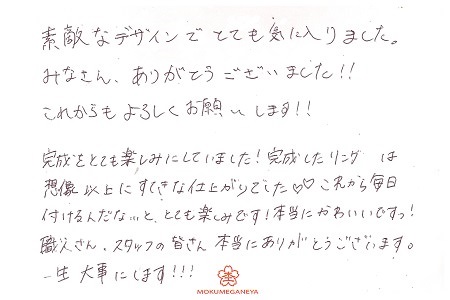 素敵なデザインでとても気に入りました。
みなさん、ありがとうございました!!
これからもよろしくお願いします!!
完成をとても楽しみにしていました!完成したリングは
想像以上にすてきな仕上がりでした♡♡これから毎日
付けるんだな…と、とても楽しみです!本当にかわいいですっ!
職人さん、スタッフの皆さん本当にありがとうございます。
一生大事にします!!!
MOKUMEGANEYA